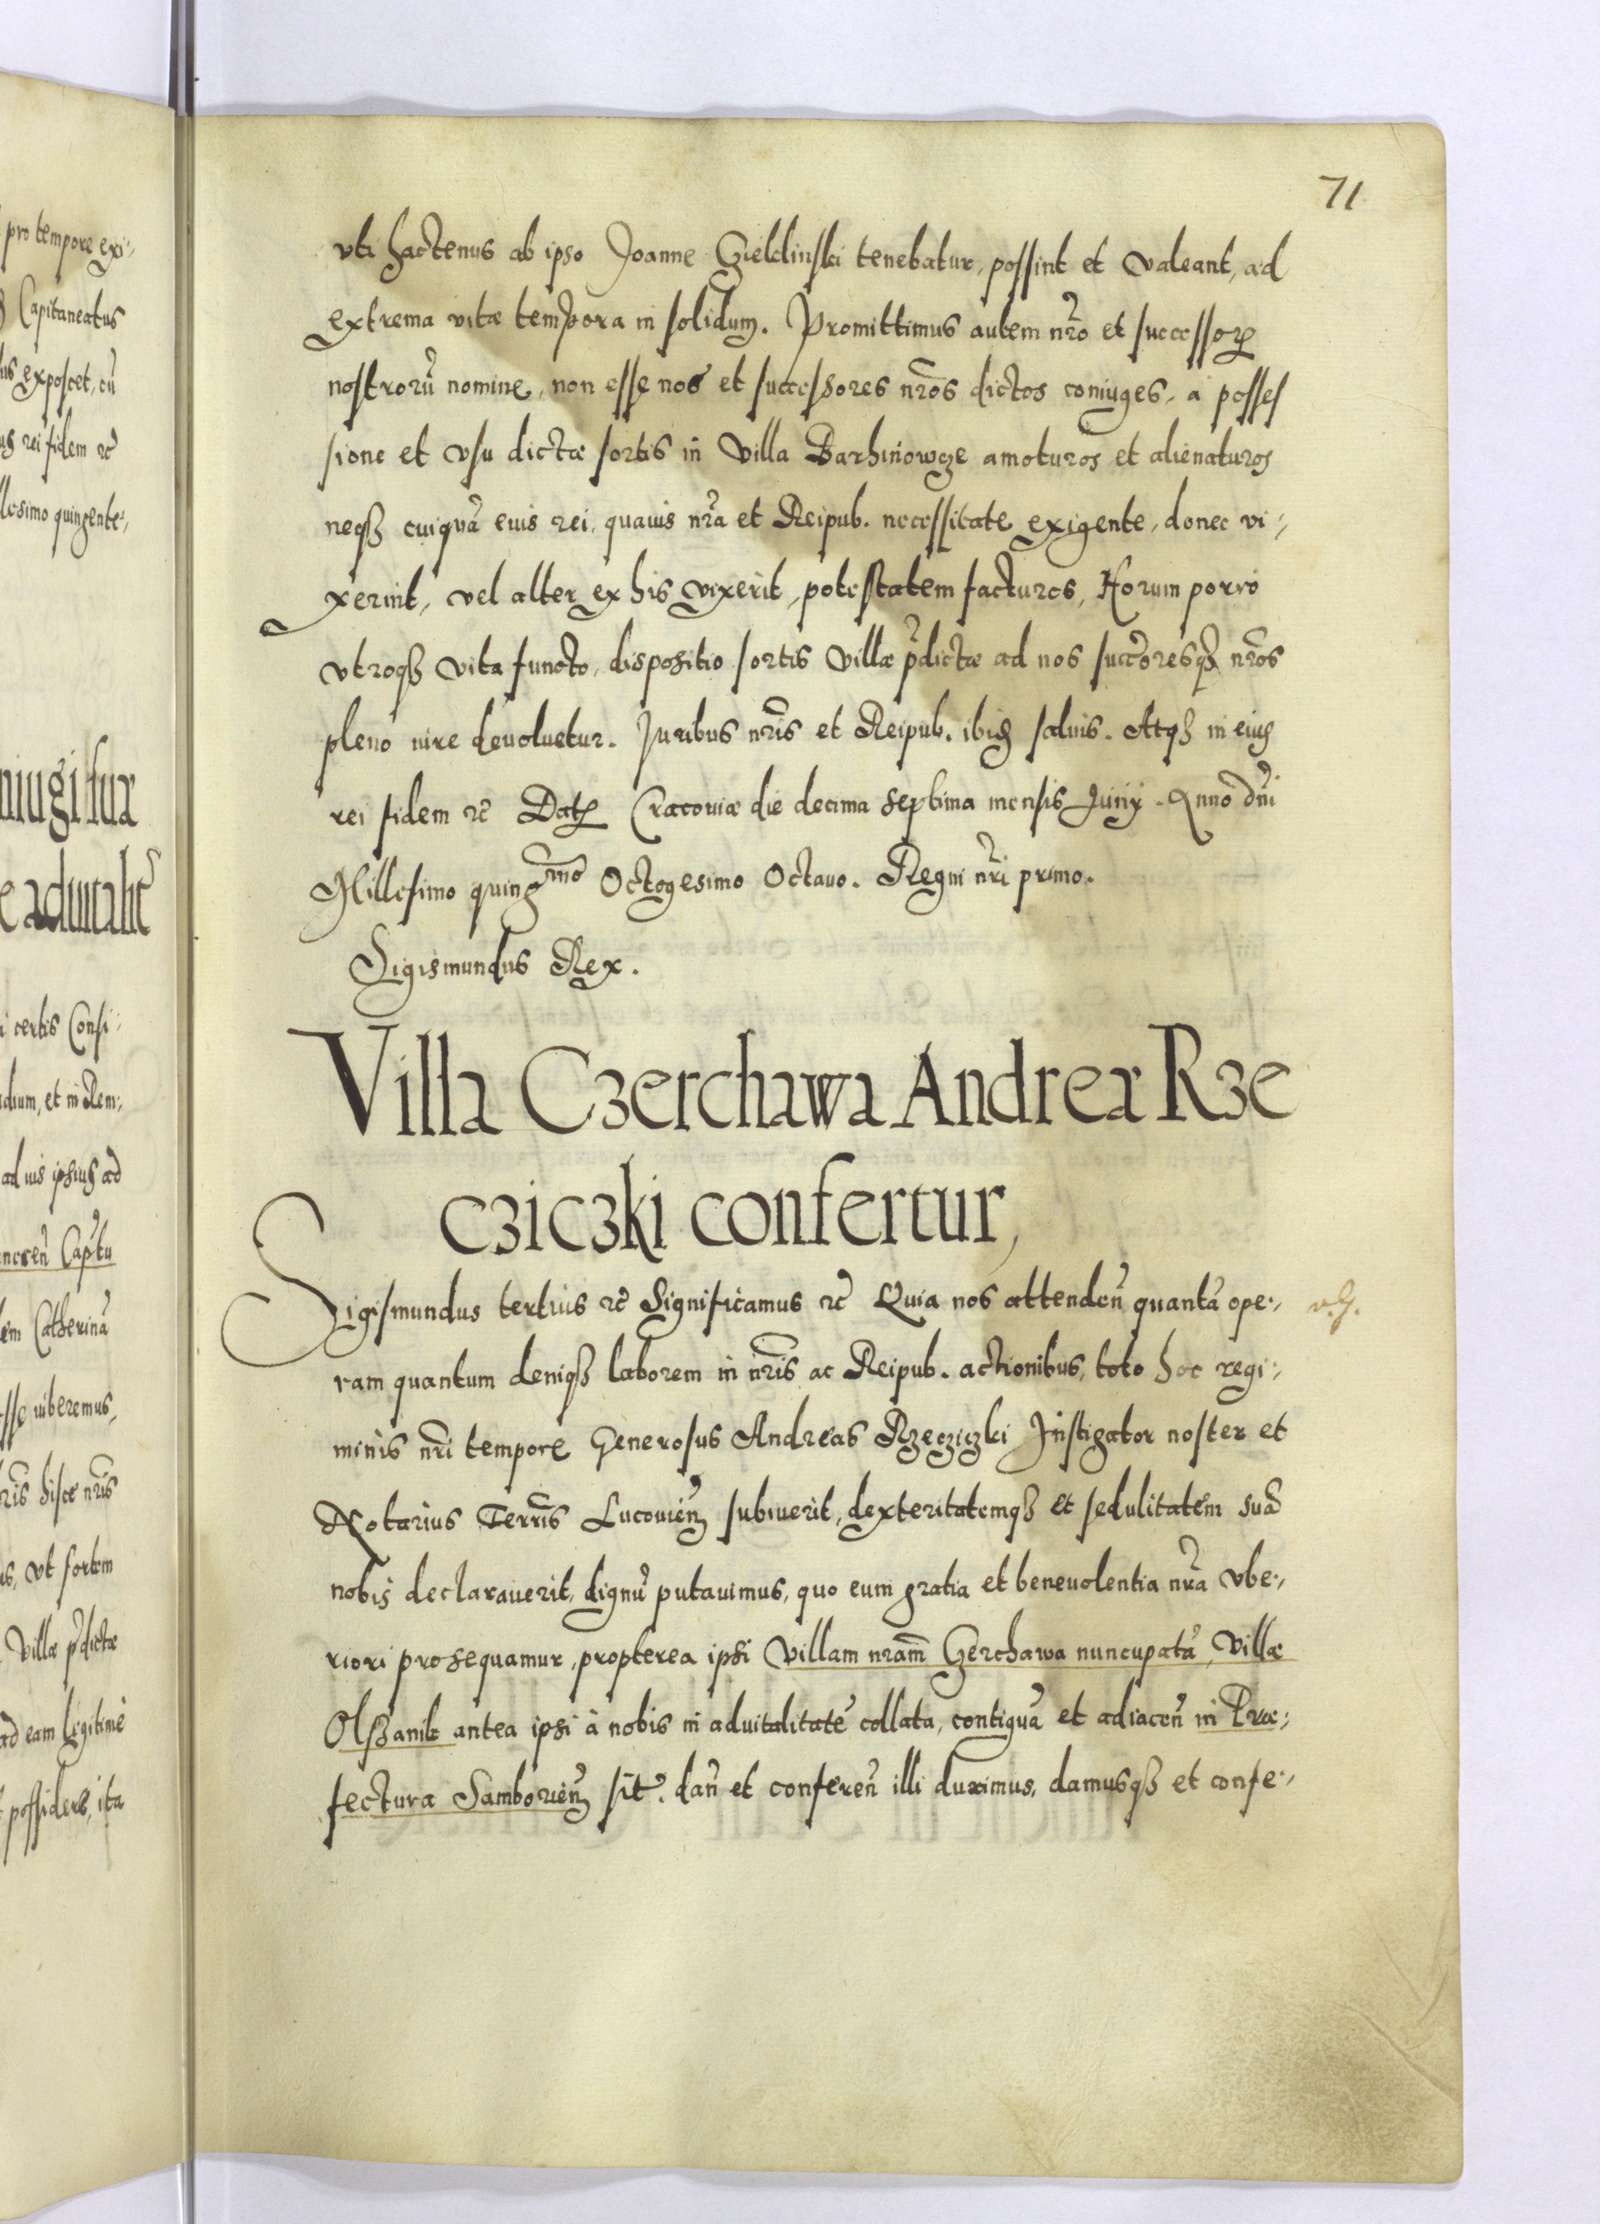 pro tempore exi:,
Capitaneatus
exposcet, cū
rei fidem ꝛc̄
quingente:,
niugi suæ
certis Consi:
et in Rem:,
ad ius ipsius ad
Cap̄tu
Catherinā
iuberemus,
hisce nr̄is
vt sortem
Villæ p̄dictæ
ad eam legitime
possidere, ita
71
vti hactenus ab ipso Joanne Gieldinski tenebatur, possint et valeant, ad
extrema vitæ tempora in solidum. Promittimus autem nr̄o et successorꝝ
nostrorū nomine, non esse nos et successores nr̄os dictos coniuges, a posses
sione et vsu dictæ sortis in Villa Barhinowcze amoturos et alienaturos
neqꝫ cuiquā eius rei, quauis nr̄a et Reipub. necessitate exigente, donec vi:,
xerint, vel alter ex his vixerit, potestatem facturos, Horum porro
vtroqꝫ vita functo, dispositio sortis Villæ p̄dictæ ad nos succ̄oresqꝫ nr̄os
pleno iure deuoluetur. Juribus nr̄is et Reipub. ibiꝫ saluis. Atqꝫ in eiuꝫ
rei fidem ꝛc̄ Datꝫ Cracouiæ die decima septima mensis Junij. Anno dn̄i
Millesimo quingmō Octogesimo Octauo. Regni nr̄i primo.
Sigismundus Rex.
Villa Czerchawa Andreæ Rze
cziczki confertur,
Sigismundus tertius ꝛc̄ Significamus ꝛc̄ Quia nos attenden̄ quantā ope:,
ram quantum deniqꝫ laborem in nr̄is ac Reipub. actionibus, toto hoc regi:,
minis nr̄i tempore Generosus Andreas Rzecziczki Instigator noster et
Notarius Terr̄is Lucouien̄ subiuerit, dexteritatemqꝫ et sedulitatem suā
nobis declarauerit, dignū putauimus, quo eum gratia et beneuolentia nr̄a vbe:,
riori prosequamur, propterea ipsi Villam nr̄am Czerchawa nuncupatā, Villæ
Olszanik antea ipsi à nobis in aduitalitatē collata, contiguā et adiacen̄ in Præ:,
fectura Samborien̄ sit. dan̄ et conferen̄ illi duximus, damusqꝫ et confe:,